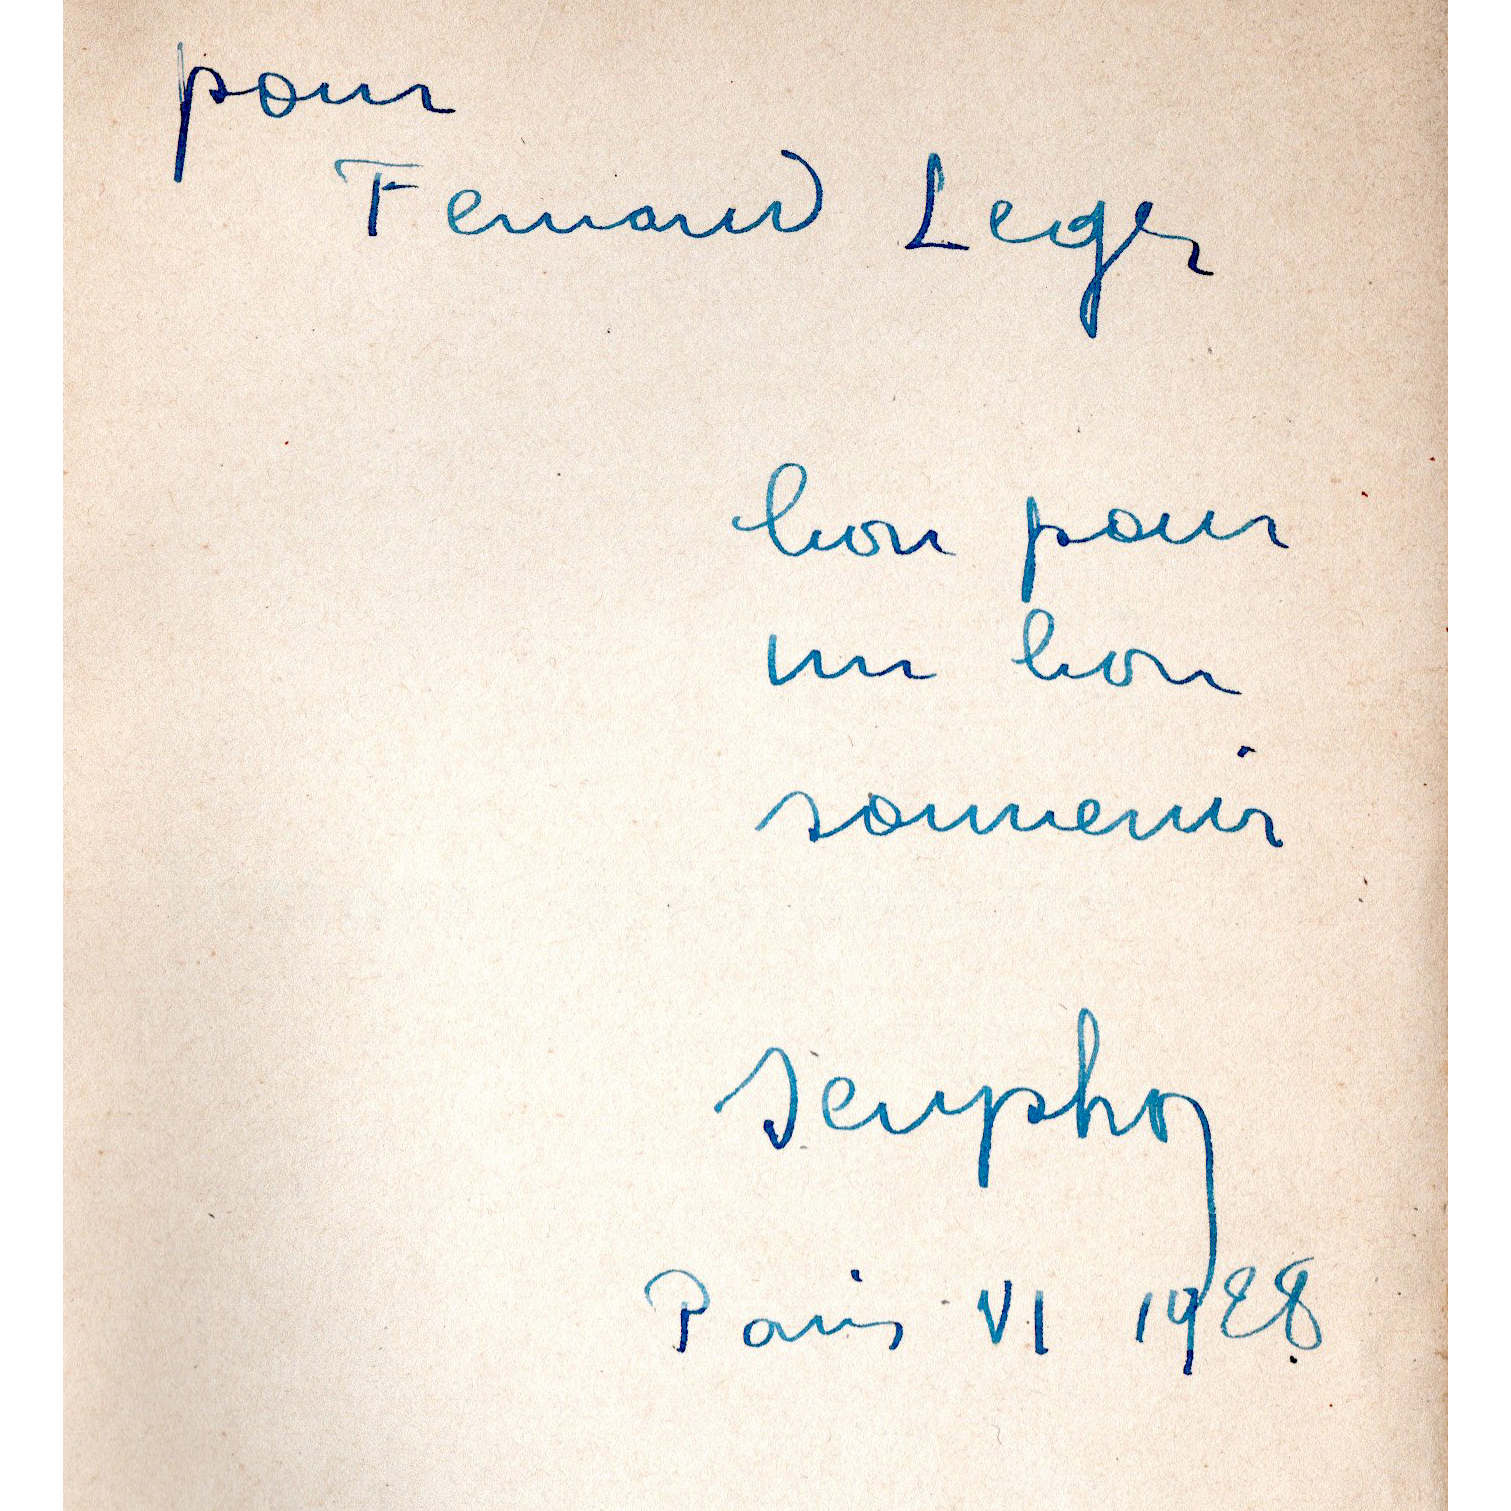 pour
Fernand Leger
bon pour
un bon
souvenir
Seuphor
Paris VI 1928